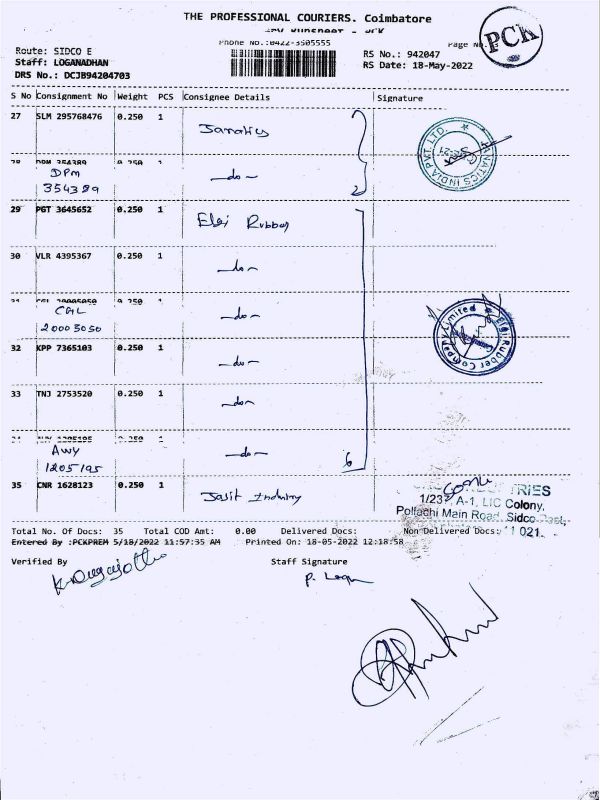 THE PROFESSIONAL COURIERS. Coimbatore
Phone No.:0422-3505555
Page No. 3
PCK
Route: SIDCO E
RS No.: 942047
Staff: LOGANADHAN
RS Date: 18-May-2022
DRS No.: DCJB94204703
S No Consignment No Weight PCS Consignee Details Signature
27 SLM 295768476 0.250 1 Janatics
DPM 354389 0.250 1 -do-
DPM
354389
2
29 PGT 3645652 0.250 1 Elgi Rubber
30 VLR 4395367 0.250 1 -do-
31 CGL 20005050 0.250 1 -do-
CGL
20005050
Elgi Rubber Company Limited
32 KPP 7365103 0.250 1 -do-
33 TNJ 2753520 0.250 1 -do-
-do-
AWY
1205195
6
35 CNR 1628123 0.250 1 Jasit Industry
TRIES
1/237 A-1, LIC Colony,
Pollachi Main Road, Sidco Post,
Total No. Of Docs: 35 Total COD Amt: 0.00 Delivered Docs: Non Delivered Docs:
021.
Entered By :PCKPREM 5/18/2022 11:57:35 AM Printed On: 18-05-2022 12:18:58
Verified By Staff Signature
P. Logu